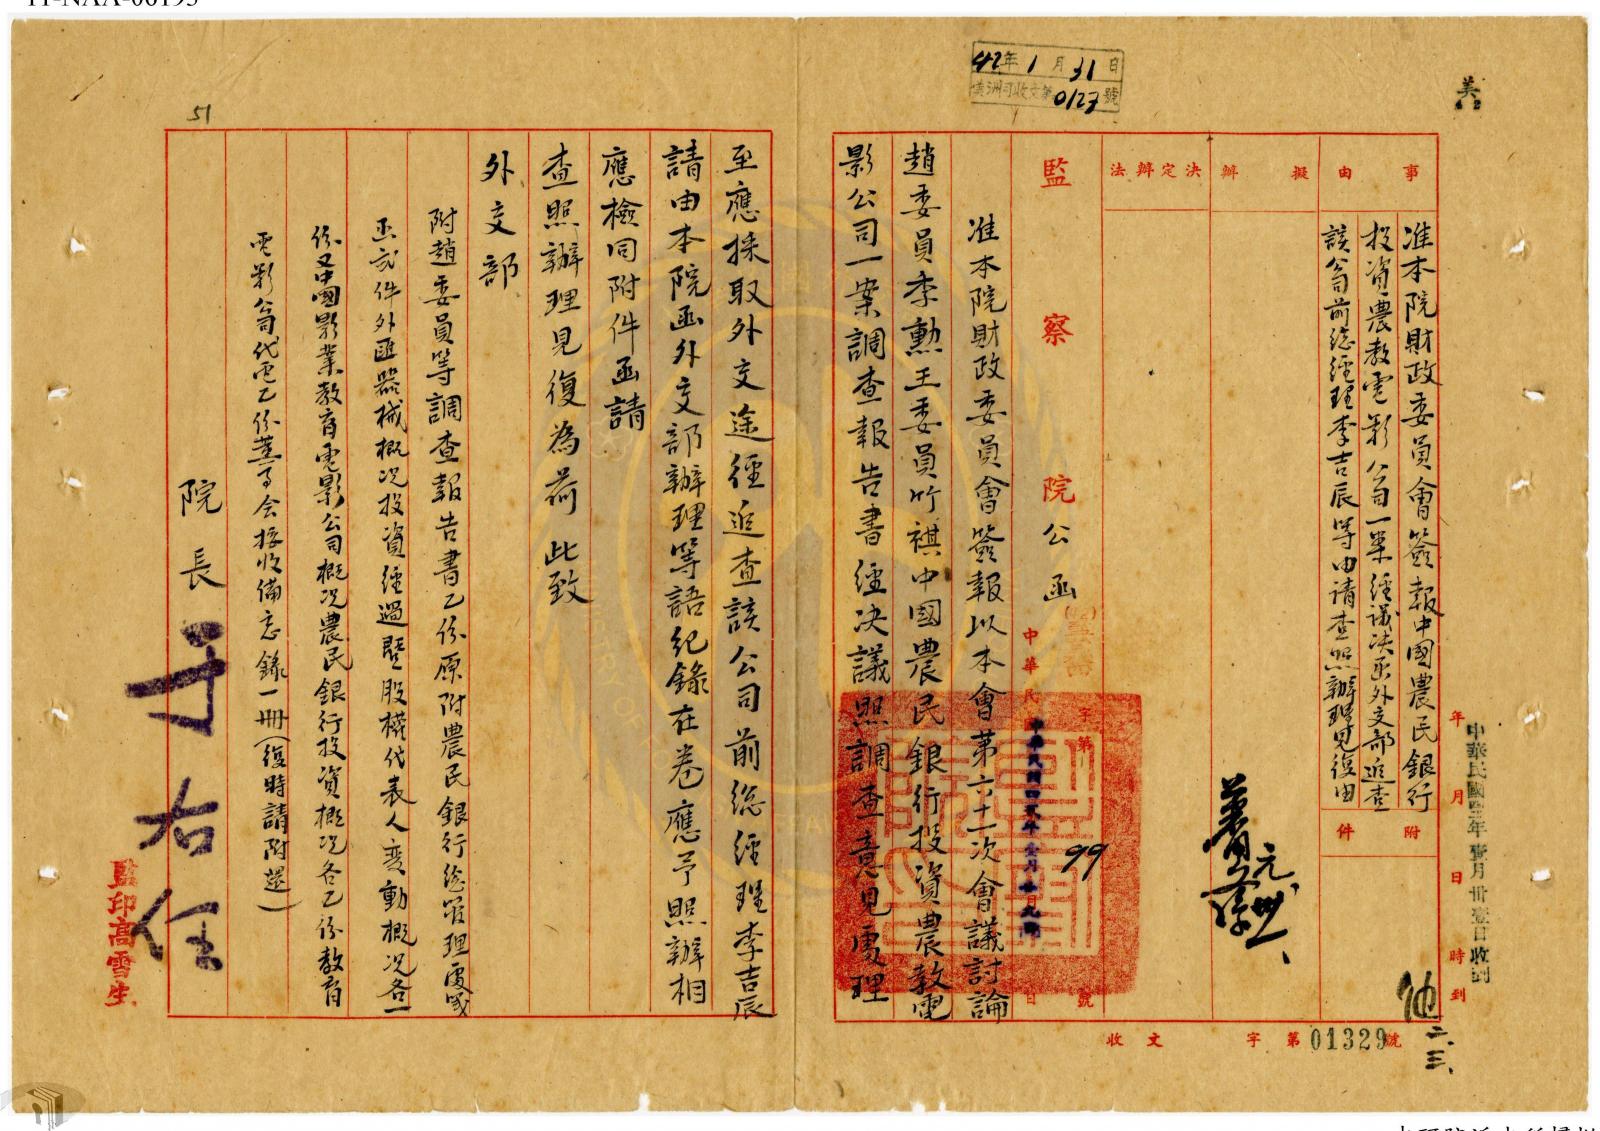 11-NAA-06195
美
42年1月31日
美洲司收文第0127號
事由
准本院財政委員會簽報中國農民銀行
投資農教電影公司一案經議決函外交部追查
該公司前總經理李吉辰等由請查照辦理見復由
附件
擬辦
決定辦法
年月日時到
中華民國四二年壹月卅壹日收到
收文 字第01329號
監察院公函
字第 99 號
中華民國四貳年壹月廿九日
准本院財政委員會簽報以本會第六十一次會議討論
趙委員李勳王委員竹祺中國農民銀行投資農教電
影公司一案調查報告書經決議照調查意見處理
至應採取外交途徑追查該公司前總經理李吉辰
請由本院函外交部辦理等語紀錄在卷應予照辦相
應檢同附件函請
查照辦理見復為荷 此致
外交部
附趙委員等調查報告書乙份原附農民銀行總管理處
函式件外匯器械概況投資經過暨股權代表人變動概況各一
份又中國影業教育電影公司概況農民銀行投資概況各乙份教育
電影公司代電乙份董事會接收備忘錄一冊(復時請附還)
院長 于右任
監印高雪生
51